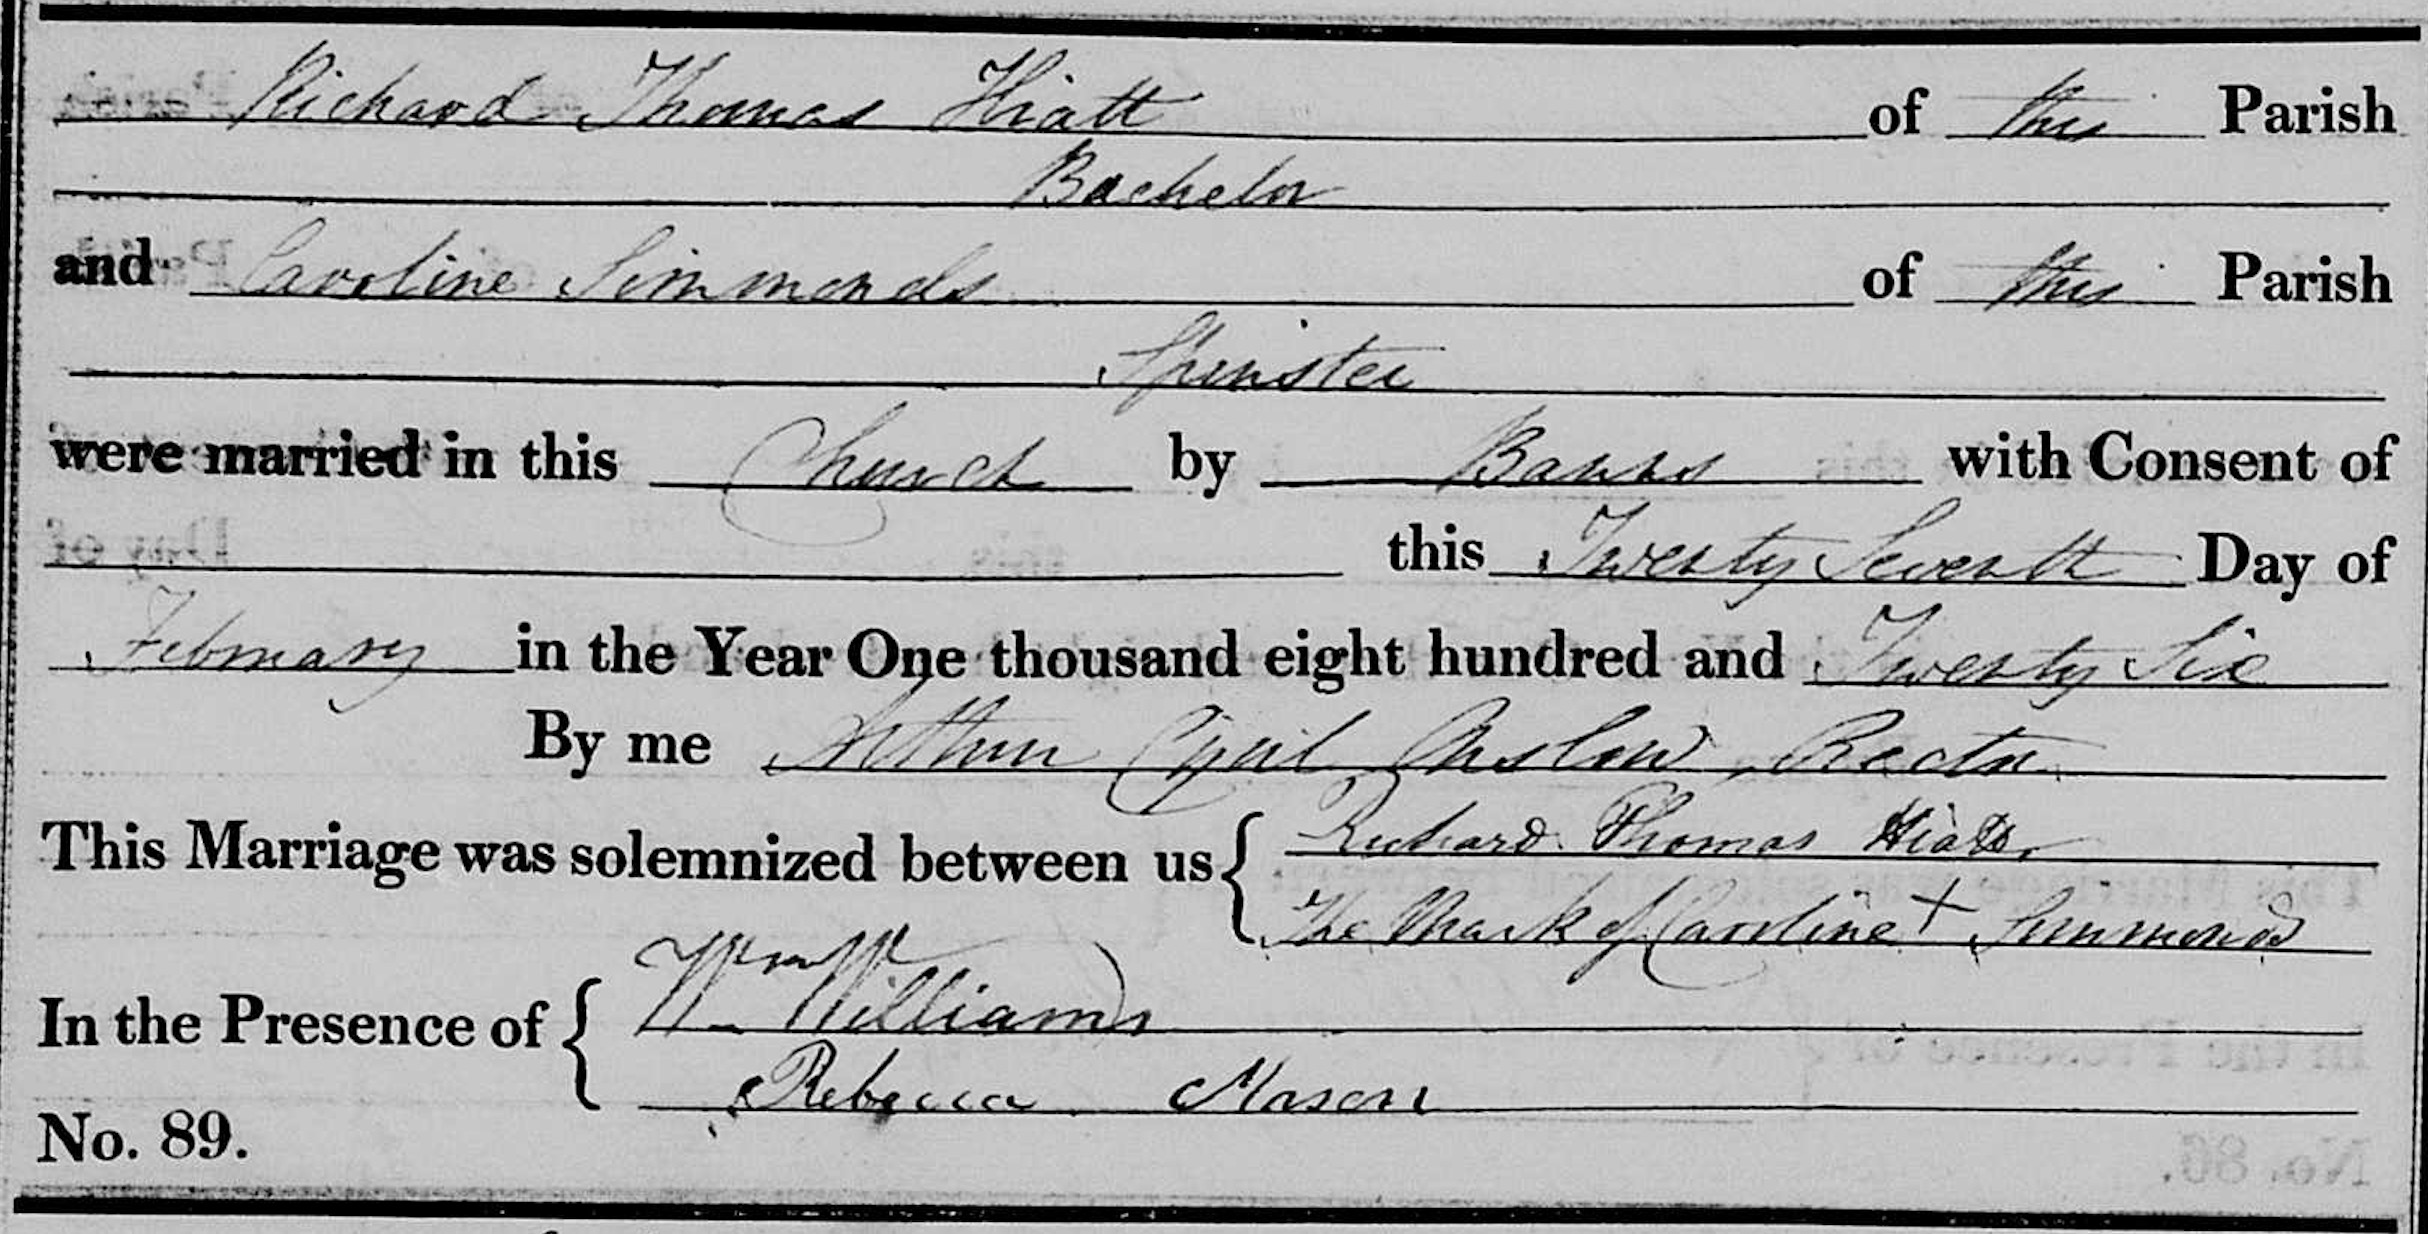 Richard Thomas Hiatt of this Parish
Bachelor
and Caroline Simmonds of this Parish
Spinster
were married in this Church by Banns with Consent of
this Twenty Seventh Day of
February in the Year One thousand eight hundred and Twenty Six
By me Arthur Cyril Onslow Rector
This Marriage was solemnized between us { Richard Thomas Hiatt
The Mark of Caroline + Simmonds
In the Presence of { Wm Williams
Rebecca Mason
No. 89.